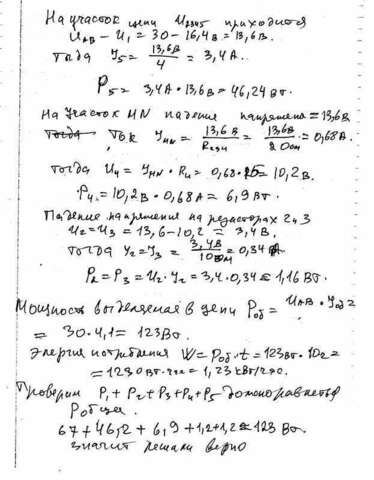 На участок цепи U2345 приходится
UAB − U1 = 30 − 16,4В = 13,6В.
Тогда У5 = 13,6В / 4 = 3,4А.
P5 = 3,4А · 13,6В = 46,24Вт.
На участок MN падения напряжения = 13,6В
Ток УMN = 13,6В / R234 = 13,6В / 20ом = 0,68А.
Тогда U4 = УMN · R4 = 0,68 · 15 = 10,2В.
P4 = 10,2В · 0,68А = 6,9Вт.
Падение напряжения на резисторах 2 и 3
U2 = U3 = 13,6 − 10,2 = 3,4В.
Тогда У2 = У3 = 3,4В / 10ом = 0,34А
P2 = P3 = U2 · У2 = 3,4 · 0,34 = 1,16Вт.
Мощность выделяемая в цепи Pоб = UAB · Уоб =
= 30 · 4,1 = 123Вт.
Энергия потребления W = Pоб · t = 123вт · 10г =
= 1230Вт·час = 1,23кВт/час.
Проверим P1 + P2 + P3 + P4 + P5 должно равняться
Pобщая.
67 + 46,2 + 6,9 + 1,2 + 1,2 = 123 Вт.
значит решали верно